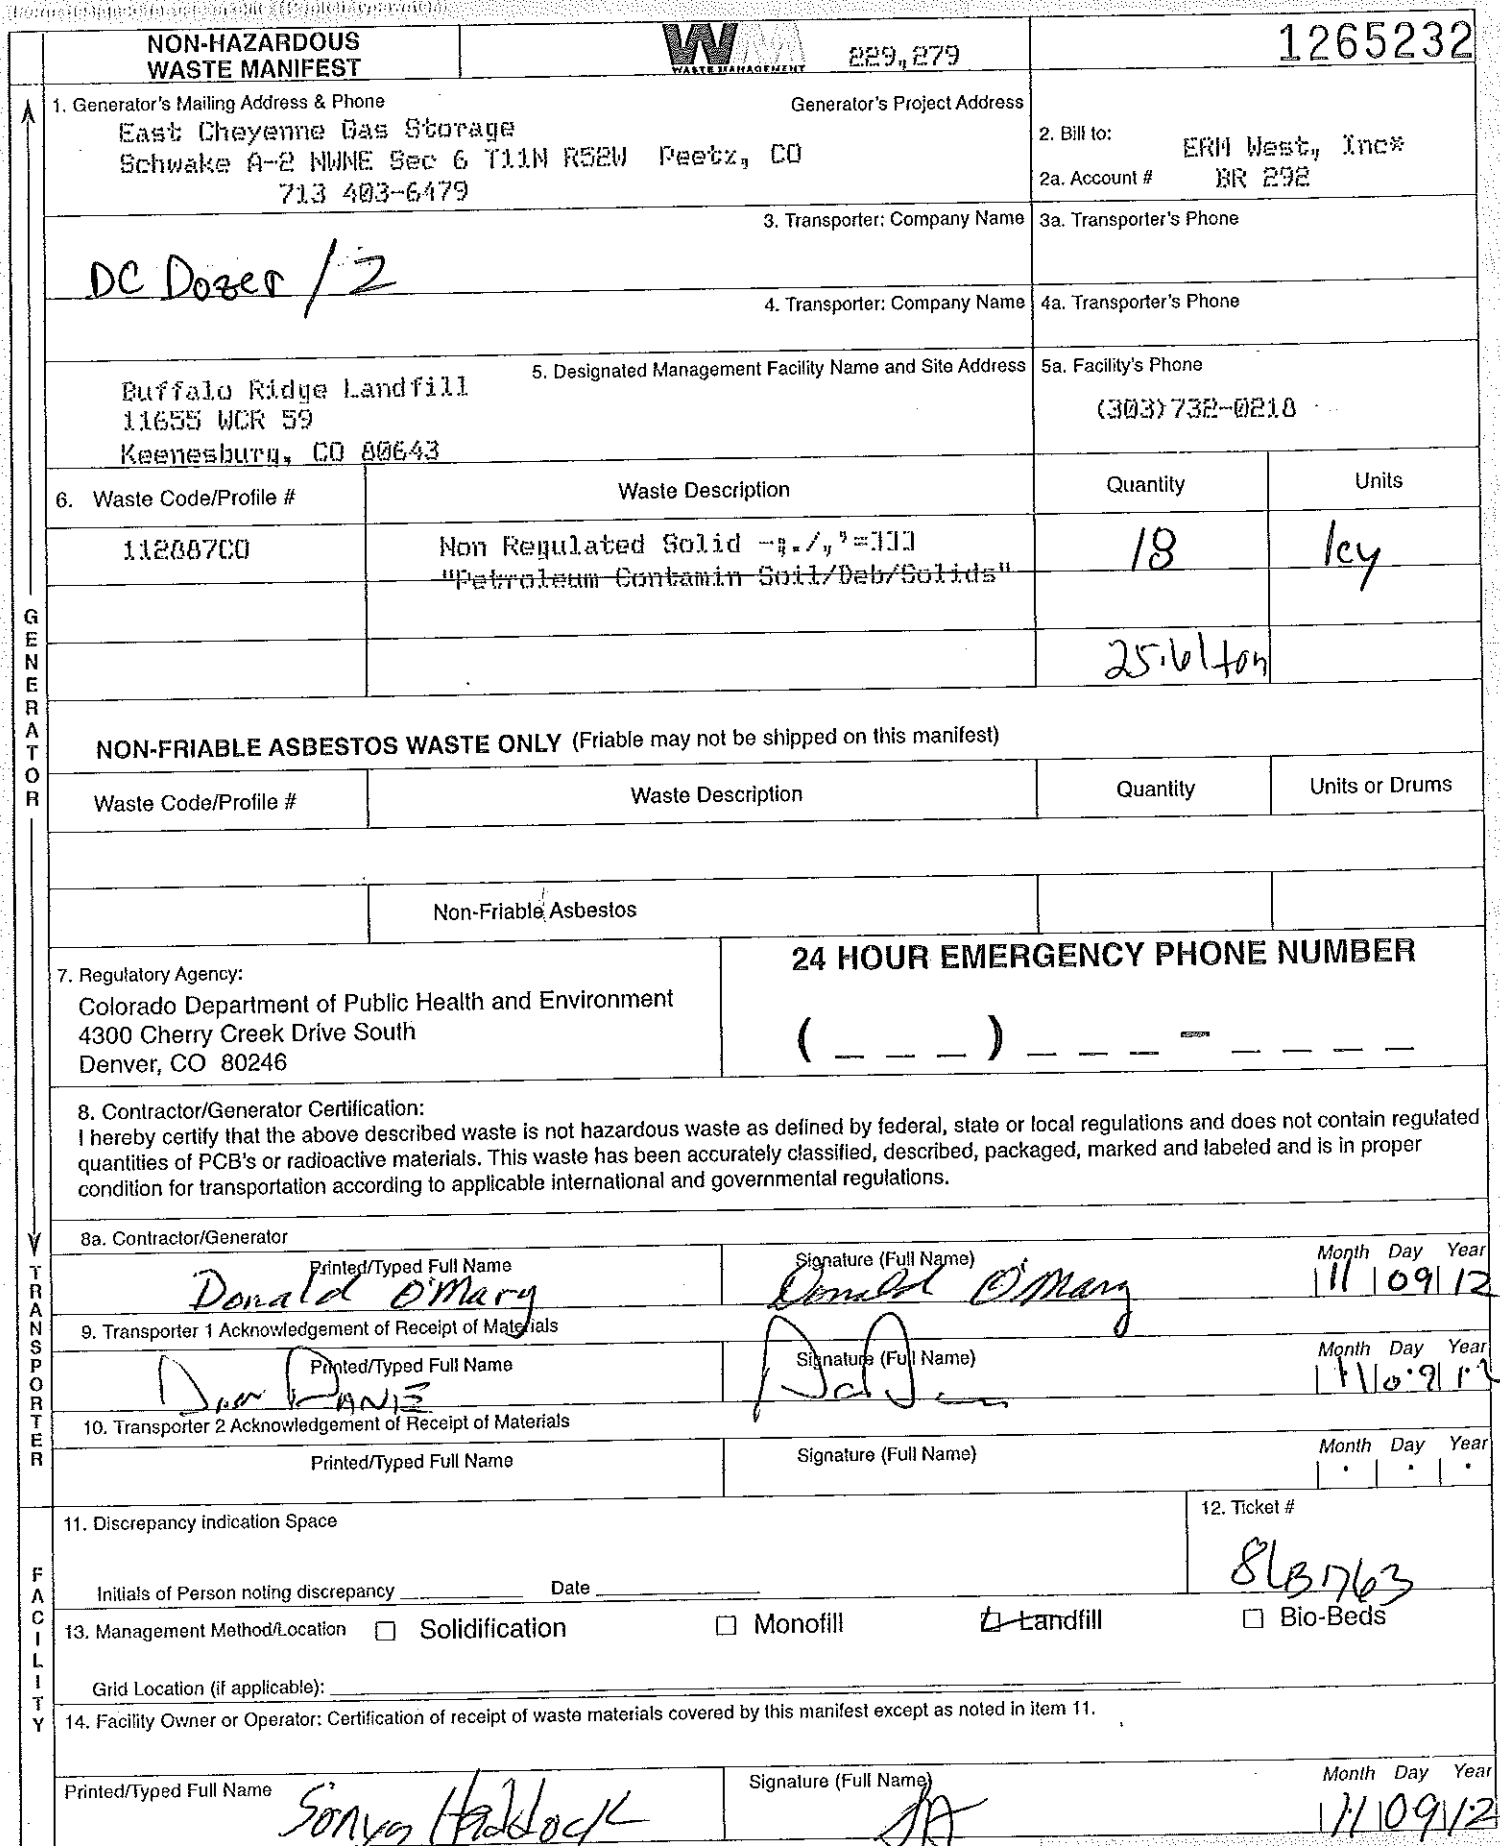 NON-HAZARDOUS
WASTE MANIFEST
WM
WASTE MANAGEMENT
229,279
1265232
1. Generator's Mailing Address & Phone
Generator's Project Address
East Cheyenne Gas Storage
Schwake A-2 NWNE Sec 6 T11N R52W Peetz, CO
713 403-6479
2. Bill to: ERM West, Inc*
2a. Account # BR 292
3. Transporter: Company Name
3a. Transporter's Phone
DC Dozer / 2
4. Transporter: Company Name
4a. Transporter's Phone
5. Designated Management Facility Name and Site Address
5a. Facility's Phone
Buffalo Ridge Landfill
11655 WCR 59
Keenesburg, CO 80643
(303)732-0218
6. Waste Code/Profile #
Waste Description
Quantity
Units
112887CO
Non Regulated Solid -;./,'=]]]
"Petroleum Contamin Soil/Deb/Solids"
18
cy
25.61 ton
NON-FRIABLE ASBESTOS WASTE ONLY (Friable may not be shipped on this manifest)
Waste Code/Profile #
Waste Description
Quantity
Units or Drums
Non-Friable Asbestos
7. Regulatory Agency:
Colorado Department of Public Health and Environment
4300 Cherry Creek Drive South
Denver, CO 80246
24 HOUR EMERGENCY PHONE NUMBER
( _ _ _ ) _ _ _ - _ _ _ _
8. Contractor/Generator Certification:
I hereby certify that the above described waste is not hazardous waste as defined by federal, state or local regulations and does not contain regulated
quantities of PCB's or radioactive materials. This waste has been accurately classified, described, packaged, marked and labeled and is in proper
condition for transportation according to applicable international and governmental regulations.
8a. Contractor/Generator
Printed/Typed Full Name
Signature (Full Name)
Month Day Year
Donald O'Mary
Donald O'Mary
11 09 12
9. Transporter 1 Acknowledgement of Receipt of Materials
Printed/Typed Full Name
Signature (Full Name)
Month Day Year
11 09 12
10. Transporter 2 Acknowledgement of Receipt of Materials
Printed/Typed Full Name
Signature (Full Name)
Month Day Year
11. Discrepancy indication Space
12. Ticket #
Initials of Person noting discrepancy
Date
13. Management Method/Location
Solidification
Monofill
Landfill
Bio-Beds
Grid Location (if applicable):
14. Facility Owner or Operator: Certification of receipt of waste materials covered by this manifest except as noted in item 11.
Printed/Typed Full Name
Signature (Full Name)
Month Day Year
Sonya Haddock
SH
11 09 12
GENERATOR
TRANSPORTER
FACILITY